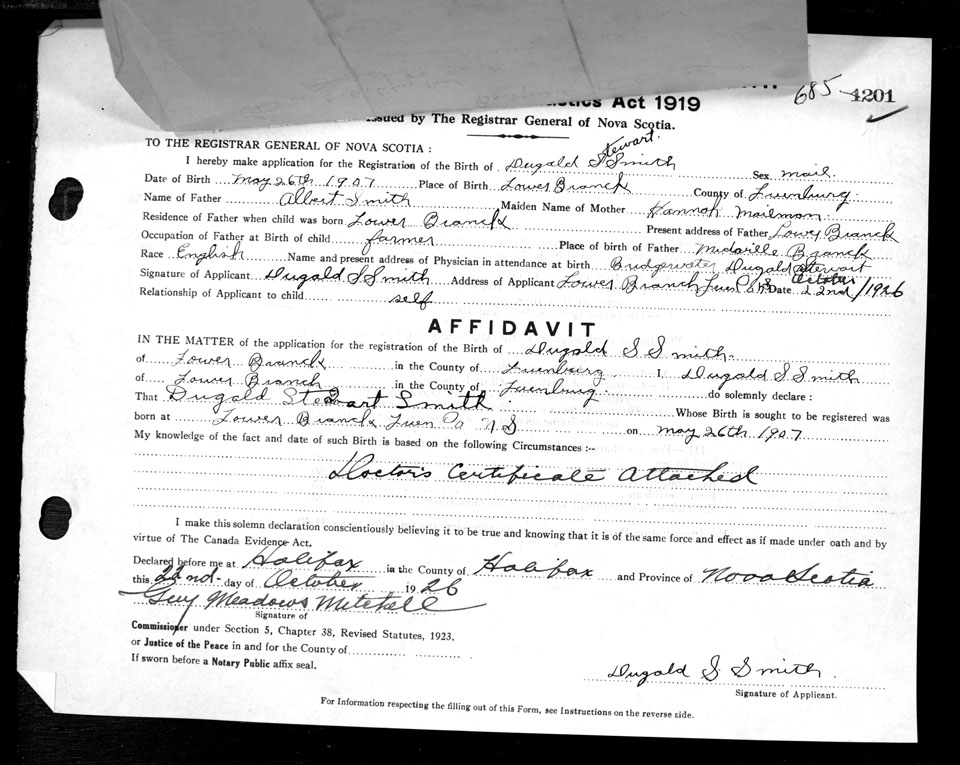 685-4201
Act 1919
issued by The Registrar General of Nova Scotia.
TO THE REGISTRAR GENERAL OF NOVA SCOTIA :
Stewart.
I hereby make application for the Registration of the Birth of Dugald S Smith Sex mail
Date of Birth May 26th 1907 Place of Birth Lower Branch County of Lunenburg
Name of Father Albert Smith Maiden Name of Mother Hannah Mailman
Residence of Father when child was born Lower Branch Present address of Father Lower Branck
Occupation of Father at Birth of child farmer Place of birth of Father Midville Branck
Race English Name and present address of Physician in attendance at birth Bridgewater, Dugald Stewart
Signature of Applicant Dugald S Smith Address of Applicant Lower Branch Luen Co N S Date October 22nd/1926
Relationship of Applicant to child self
AFFIDAVIT
IN THE MATTER of the application for the registration of the Birth of Dugald S Smith
of Lower Branck in the County of Luenburg I, Dugald S Smith
of Lower Branch in the County of Luenburg do solemnly declare :
That Dugald Stewart Smith Whose Birth is sought to be registered was
born at Lower Branck Luen Co N S on May 26th 1907
My knowledge of the fact and date of such Birth is based on the following Circumstances :--
Doctors Certificate Attached
I make this solemn declaration conscientiously believing it to be true and knowing that it is of the same force and effect as if made under oath and by
virtue of The Canada Evidence Act.
Declared before me at Halifax in the County of Halifax and Province of Nova Scotia
this 22nd day of October 1926
Guy Meadows Mitchell
Signature of
Commissioner under Section 5, Chapter 38, Revised Statutes, 1923.
or Justice of the Peace in and for the County of
If sworn before a Notary Public affix seal.
Dugald S Smith.
Signature of Applicant.
For Information respecting the filling out of this Form, see Instructions on the reverse side.